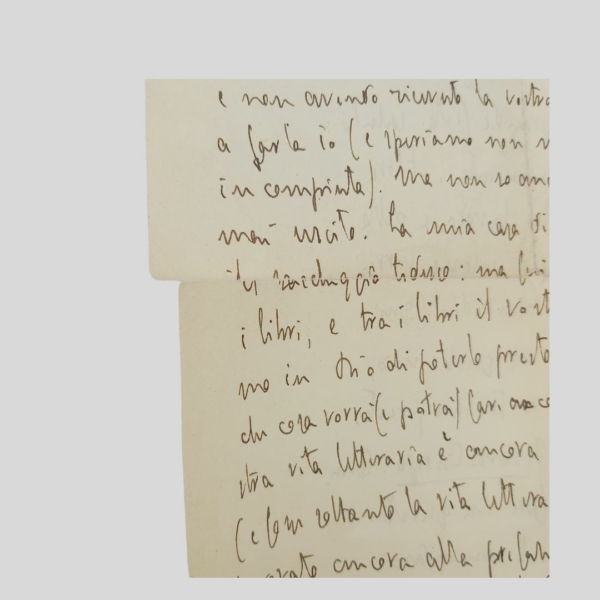 e non avendo ricevuto la vostra
a farla io (e speriamo non
in compiuta). Ma non so anc
mai uscito. La mia casa di
il saccheggio tedesco: ma fui
i libri, e tra i libri il vost
mo in Dio di poterlo presto
che cosa vorrà (e potrà) fare anco
stra vita letteraria è ancora
(e fosse soltanto la vita lettera
ancora alla